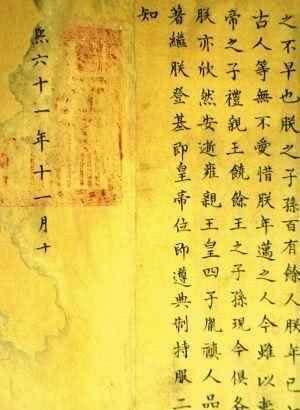 之不早也朕之子孫百有餘人朕年已
古人等無不愛惜朕年邁之人今雖以
帝之子禮親王饒餘王之子孫現今俱各
朕亦欣然安逝雍親王皇四子胤禛人品
著繼朕登基即皇帝位即遵典制持服二
知
熙六十一年十一月十